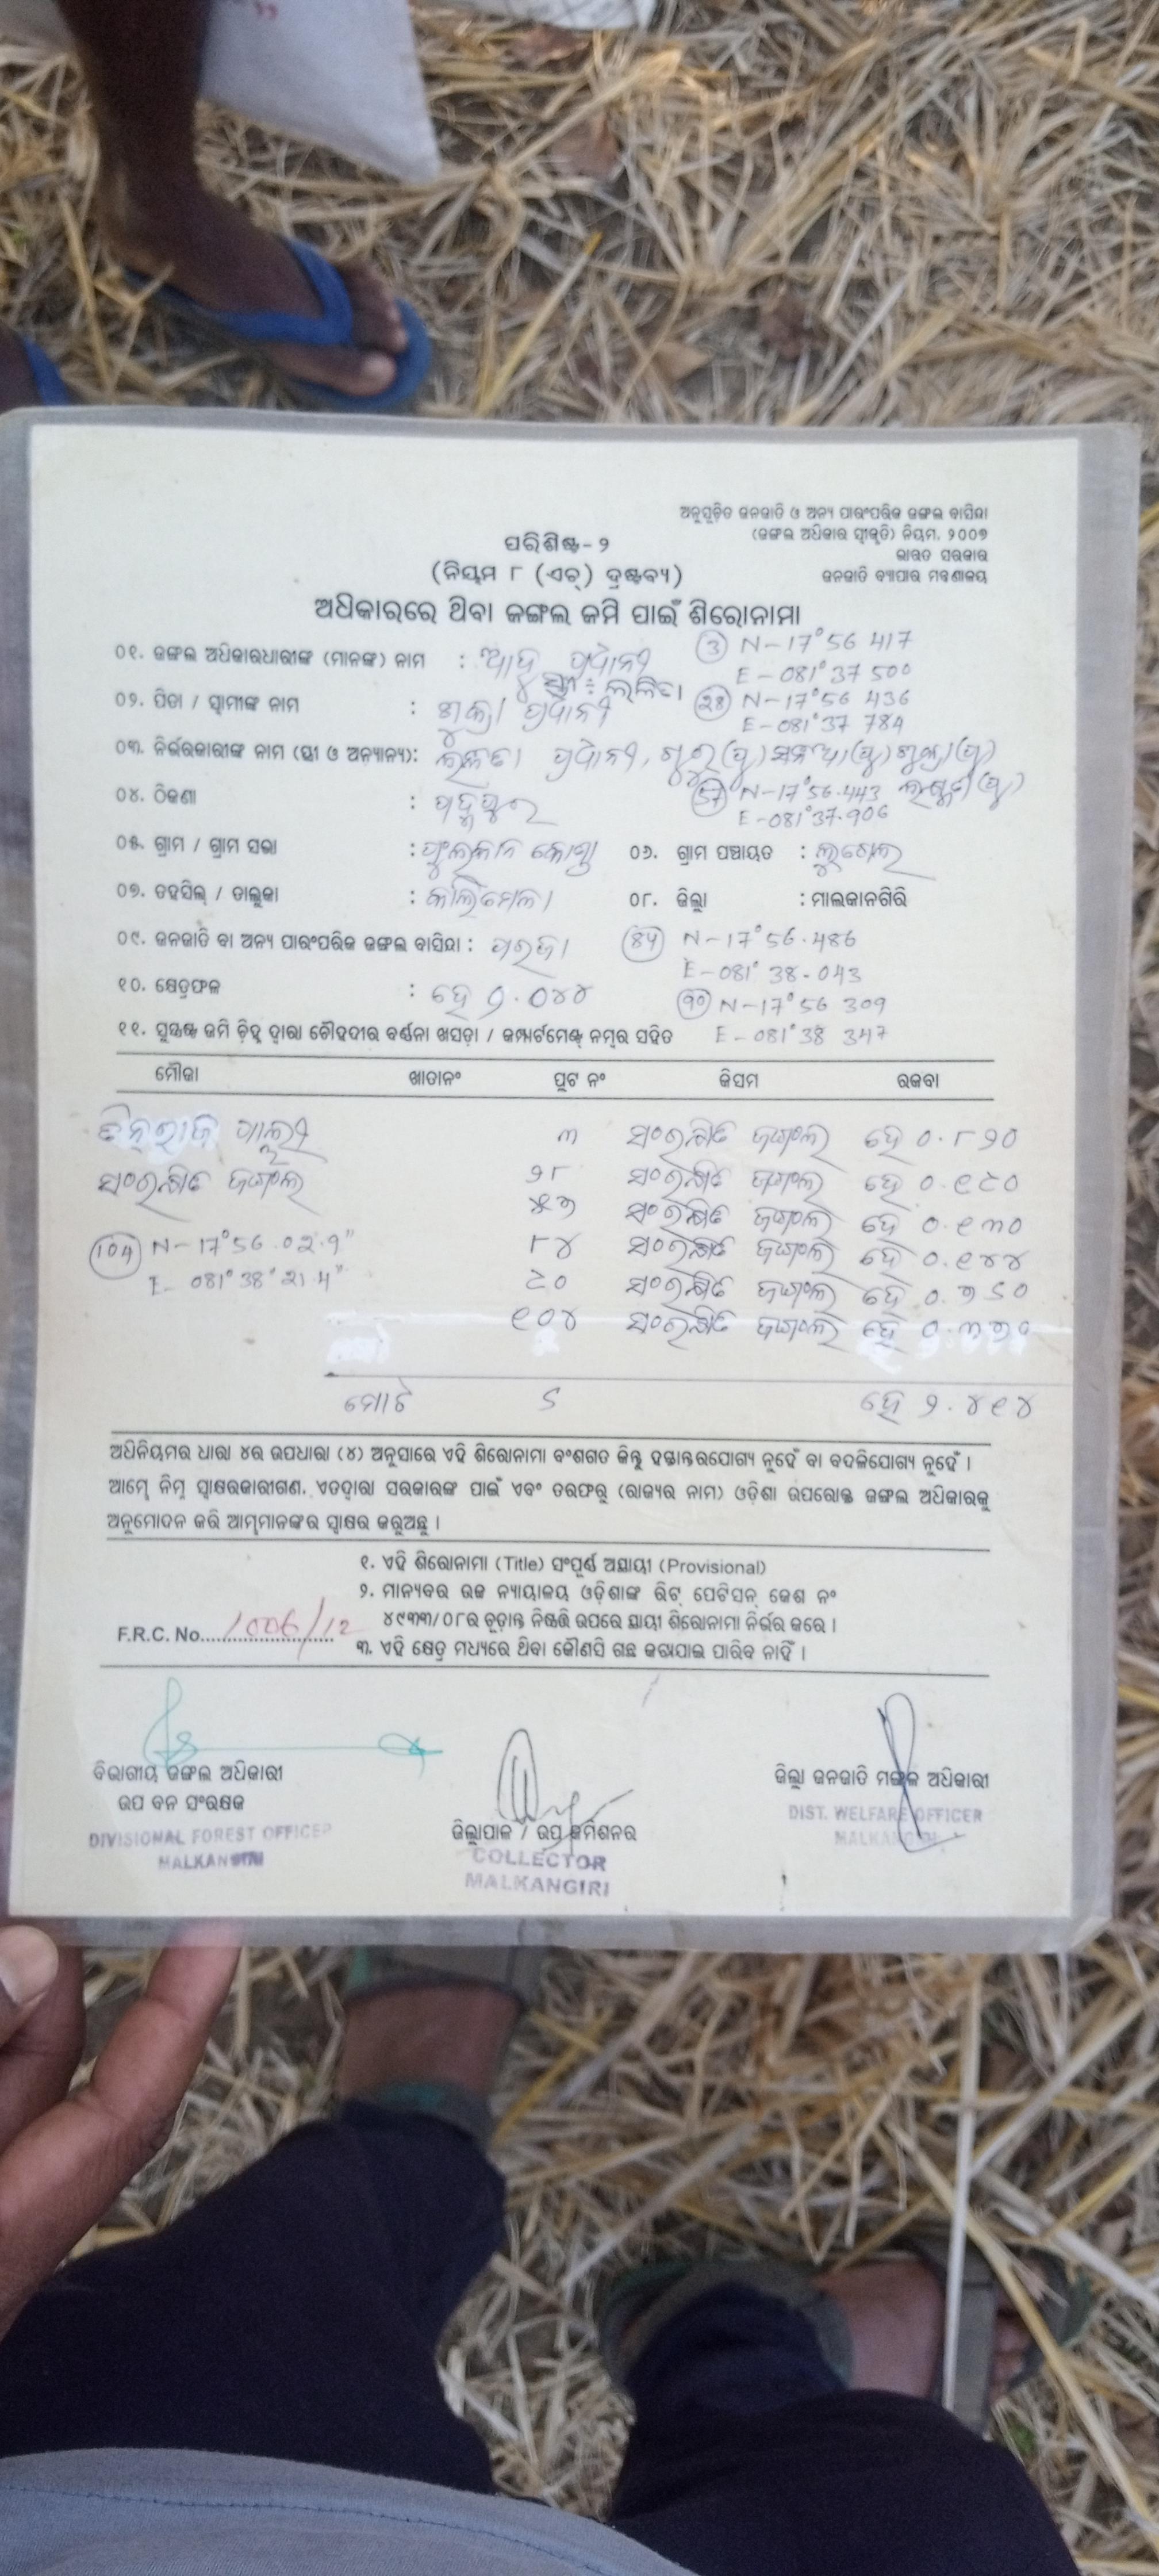 ଅନୁସୂଚିତ ଜନଜାତି ଓ ଅନ୍ୟ ପାରଂପରିକ ଜଙ୍ଗଲ ବାସିନ୍ଦା
(ଜଙ୍ଗଲ ଅଧିକାର ସ୍ୱୀକୃତି) ନିୟମ, ୨୦୦୭
ଭାରତ ସରକାର
ଜନଜାତି ବ୍ୟାପାର ମନ୍ତ୍ରଣାଳୟ
ପରିଶିଷ୍ଟ-୨
(ନିୟମ ୮ (ଏଚ୍) ଦ୍ରଷ୍ଟବ୍ୟ)
ଅଧିକାରରେ ଥିବା ଜଙ୍ଗଲ ଜମି ପାଇଁ ଶିରୋନାମା
୦୧. ଜଙ୍ଗଲ ଅଧିକାରଧାରୀଙ୍କ (ମାନଙ୍କ) ନାମ :
(3) N-17°56 417
E-081°37 500
୦୨. ପିତା / ସ୍ୱାମୀଙ୍କ ନାମ :
(28) N-17°56 436
E-081°37 784
୦୩. ନିର୍ଭରକାରୀଙ୍କ ନାମ (ସ୍ତ୍ରୀ ଓ ଅନ୍ୟାନ୍ୟ):
୦୪. ଠିକଣା :
(57) N-17°56.443
E-081°37.906
୦୫. ଗ୍ରାମ / ଗ୍ରାମ ସଭା : ୦୬. ଗ୍ରାମ ପଞ୍ଚାୟତ :
୦୭. ତହସିଲ୍ / ତାଲୁକା : କାଲିମେଳା ୦୮. ଜିଲ୍ଲା : ମାଲକାନଗିରି
୦୯. ଜନଜାତି ବା ଅନ୍ୟ ପାରଂପରିକ ଜଙ୍ଗଲ ବାସିନ୍ଦା : ପରଜା (84) N-17°56.486
E-081° 38-043
୧୦. କ୍ଷେତ୍ରଫଳ : ହେ (90) N-17°56 309
E-081°38 347
୧୧. ସୁସ୍ପଷ୍ଟ ଜମି ଚିହ୍ନ ଦ୍ୱାରା ଚୌହଦୀର ବର୍ଣ୍ଣନା ଖସଡ଼ା / କମ୍ପାର୍ଟମେଣ୍ଟ ନମ୍ବର ସହିତ
ମୌଜା ଖାତାନଂ ପ୍ଲଟ ନଂ କିସମ ରକବା
୩ ସଂରକ୍ଷିତ ଜଙ୍ଗଲ ହେ ୦.୮୨୦
ସଂରକ୍ଷିତ ଜଙ୍ଗଲ ୨୮ ସଂରକ୍ଷିତ ଜଙ୍ଗଲ ହେ ୦.୧୯୦
୫୭ ସଂରକ୍ଷିତ ଜଙ୍ଗଲ ହେ ୦.୧୩୦
(104) N-17°56.02.9" ୮୪ ସଂରକ୍ଷିତ ଜଙ୍ଗଲ ହେ ୦.୧୪୪
E-081°38'21.4" ୯୦ ସଂରକ୍ଷିତ ଜଙ୍ଗଲ ହେ ୦.୭୬୦
୧୦୪ ସଂରକ୍ଷିତ ଜଙ୍ଗଲ ହେ
ମୋଟ ୬ ହେ ୨.୪୧୪
ଅଧିନିୟମର ଧାରା ୪ର ଉପଧାରା (୪) ଅନୁସାରେ ଏହି ଶିରୋନାମା ବଂଶଗତ କିନ୍ତୁ ହସ୍ତାନ୍ତରଯୋଗ୍ୟ ନୁହେଁ ବା ବଦଳିଯୋଗ୍ୟ ନୁହେଁ ।
ଆମ୍ଭେ ନିମ୍ନ ସ୍ୱାକ୍ଷରକାରୀଗଣ, ଏତଦ୍ୱାରା ସରକାରଙ୍କ ପାଇଁ ଏବଂ ତରଫରୁ (ରାଜ୍ୟର ନାମ) ଓଡ଼ିଶା ଉପରୋକ୍ତ ଜଙ୍ଗଲ ଅଧିକାରକୁ
ଅନୁମୋଦନ କରି ଆମ୍ଭମାନଙ୍କର ସ୍ୱାକ୍ଷର କରୁଅଛୁ ।
୧. ଏହି ଶିରୋନାମା (Title) ସଂପୂର୍ଣ୍ଣ ଅସ୍ଥାୟୀ (Provisional)
୨. ମାନ୍ୟବର ଉଚ୍ଚ ନ୍ୟାୟାଳୟ ଓଡ଼ିଶାଙ୍କ ରିଟ୍ ପେଟିସନ୍ କେଶ ନଂ
୪୯୩୩/୦୮ର ଚୂଡ଼ାନ୍ତ ନିଷ୍ପତ୍ତି ଉପରେ ସ୍ଥାୟୀ ଶିରୋନାମା ନିର୍ଭର କରେ ।
F.R.C. No. 1006/12
୩. ଏହି କ୍ଷେତ୍ର ମଧ୍ୟରେ ଥିବା କୌଣସି ଗଛ କଟାଯାଇ ପାରିବ ନାହିଁ ।
ବିଭାଗୀୟ ଜଙ୍ଗଲ ଅଧିକାରୀ
ଉପ ବନ ସଂରକ୍ଷକ
DIVISIONAL FOREST OFFICER
MALKANGIRI
ଜିଲ୍ଲାପାଳ / ଉପ କମିଶନର
COLLECTOR
MALKANGIRI
ଜିଲ୍ଲା ଜନଜାତି ମଙ୍ଗଳ ଅଧିକାରୀ
DIST. WELFARE OFFICER
MALKANGIRI